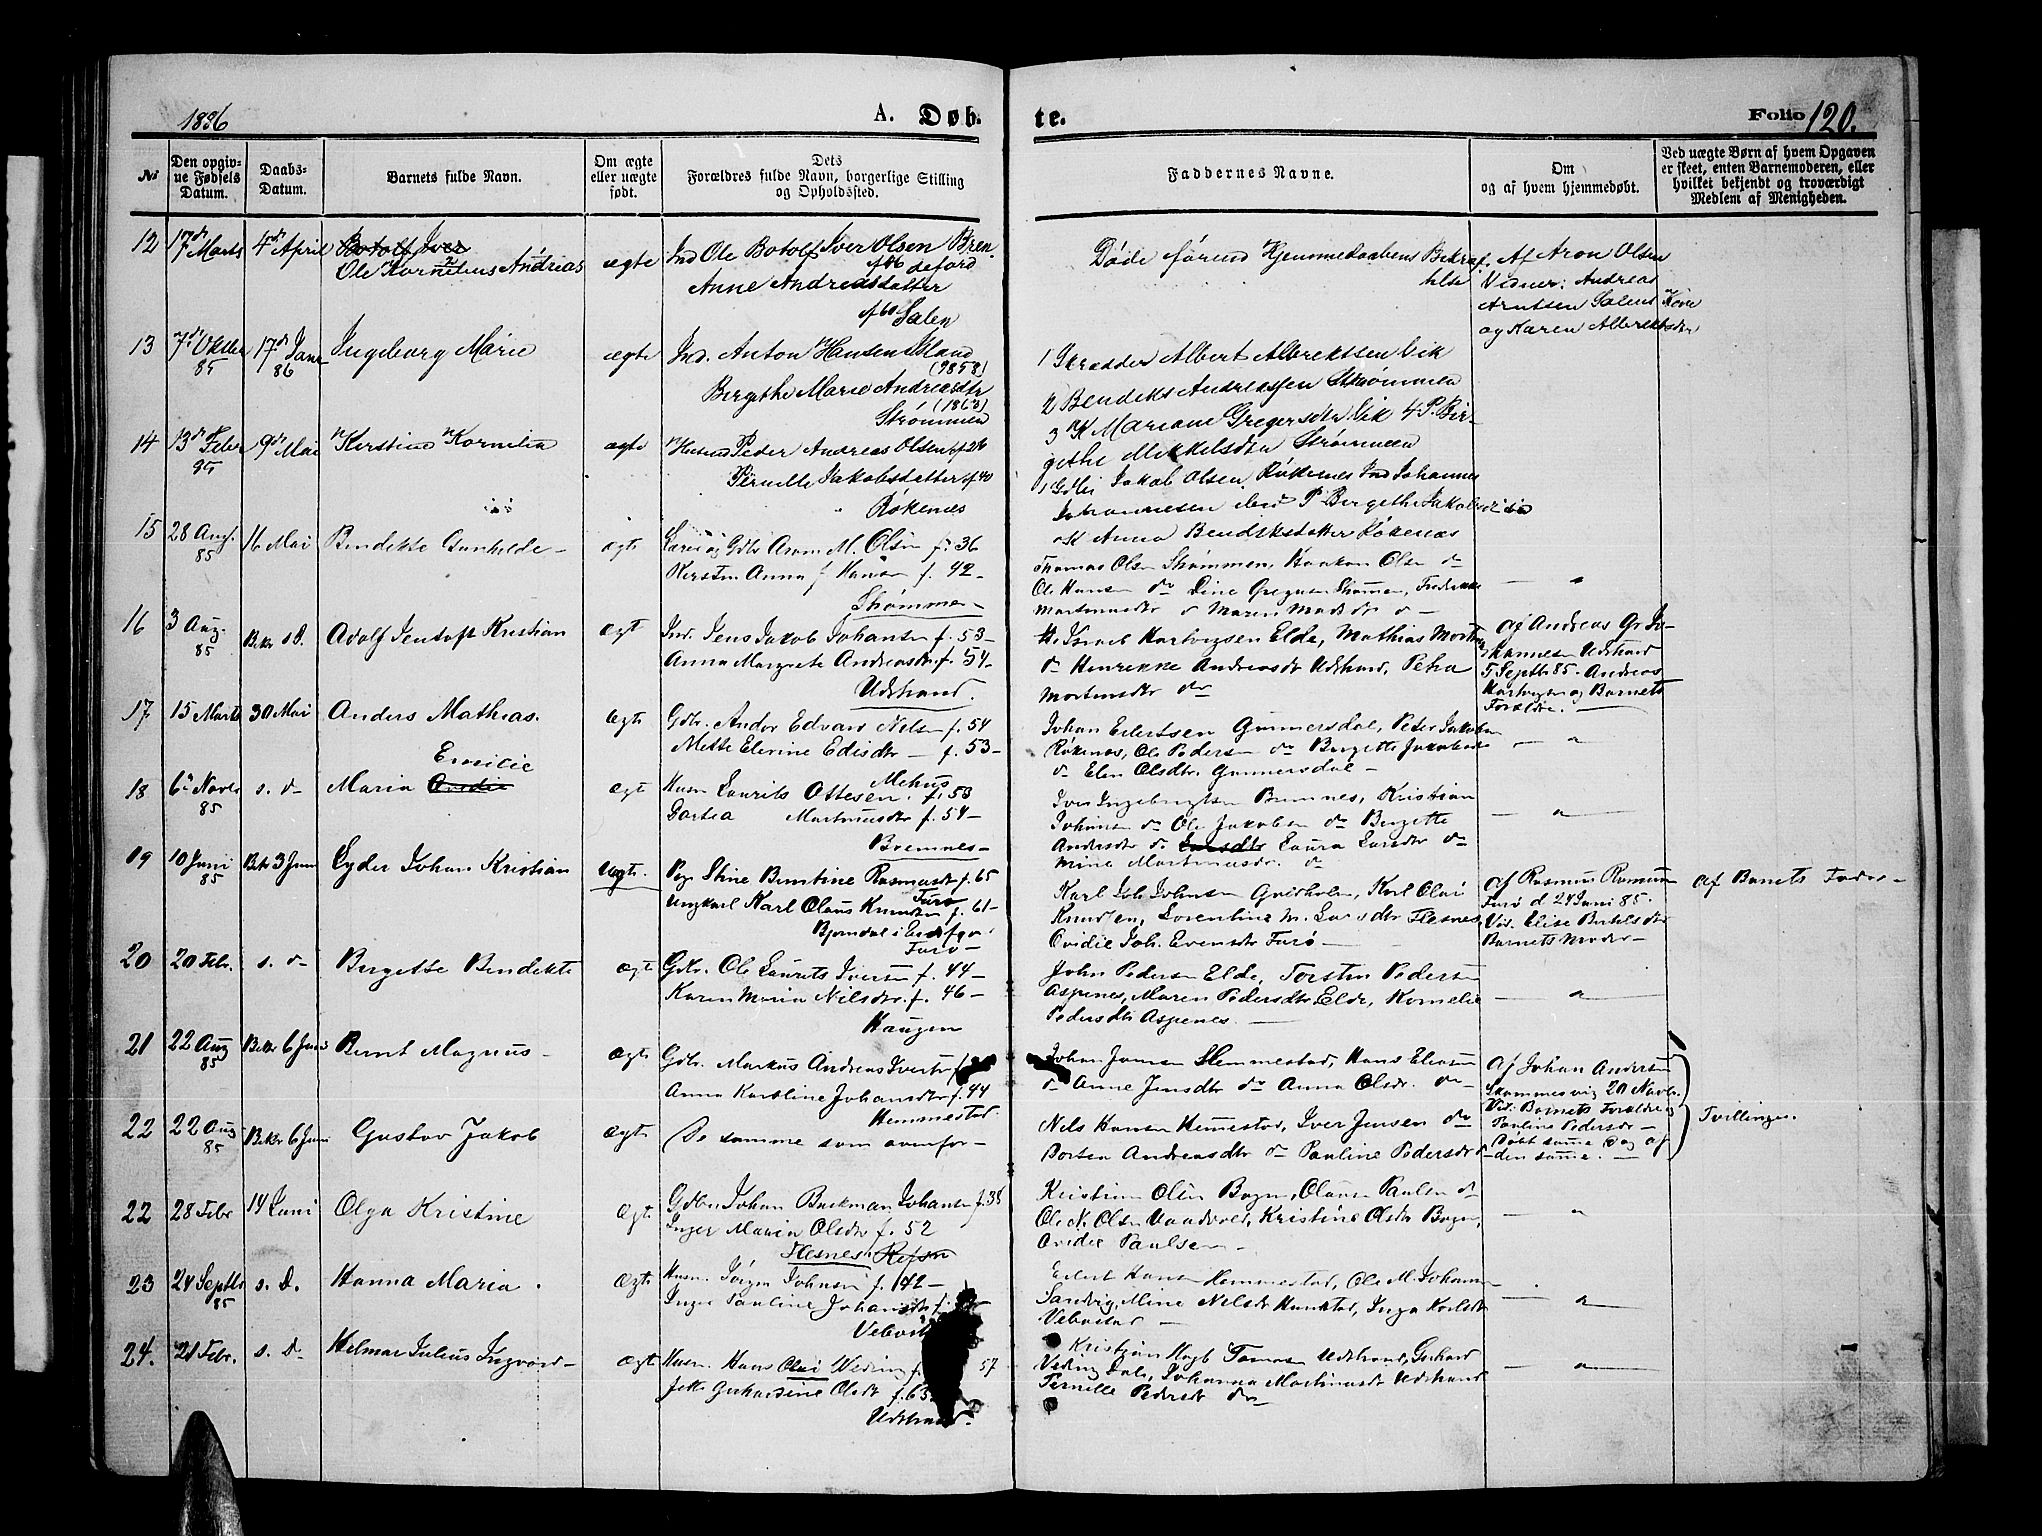 1886
A. Døb-
te.
Folio 120.
No
Den opgiv-
ne Fødsels
Datum.
Daabs-
Datum.
Barnets fulde Navn.
Om ægte
eller uægte
født.
Dets
Forældres fulde Navn, borgerlige Stilling
og Opholdssted.
Faddernes Navne.
Om
og af hvem hjemmedøbt.
Ved uægte Børn af hvem Opgaven
er skeet, enten Barnemoderen, eller
hvilket bekjendt og troværdigt
Medlem af Menigheden.
12 17de Marts 4de April Botolf Iver
Ole Kornelius Andreas ægte Ind Ole Botolf Iver Olsen Bren-
Anne Andreasdatter
f 60 Salen
Døde førend Hjemmedaabens Bekræf-
telse
Af Aron Olsen
Vidner: Andreas
Arntsen Salens Kone
og Karen Albrektsdtr
13 7de Oktbr 85 17de Janr 86 Ingeborg Marie ægte Ind. Anton Hansen
(1858)
Bergithe Marie Andreasdtr
(1863)
Strømmen
1 Skrædder Albert Albrektsen Vik
2 Bendiks Andreassen Strømmen
3 K Mariane Gregersdtr Vik 4 P. Bir-
githe Mikkelsdtr Strømmen
14 13de Febr 85 9de Mai Kirstine Kornelia ægte Husmd Peder Andreas Olsen f 26
Pernille Jakobsdatter f 40
Røkenes
1 Gdbr Jakob Olsen Røkenes Ind Johannes
Johannesen ibid P Bergethe Jakobsdtr ibid
K Anna Bendiksdatter Røkenes
15 28 Aug. 85 16 Mai Bendikte Gunhilde - ægte Lærer og Gdbr Aron M. Olsen f. 36
Kirsten Anna f Hansen f. 42 -
Strømmen -
Thomas Olsen Strømmen, Haakon Olsen do
Ole Hansen do Dina Gregersen Strømmen, Fredrikke
Martinusdtr do Maren Madsdtr do -
16 3 Aug. 85 Bekr s.D. Adolf Jentoft Kristian ægt Ind. Jens Jakob Johansen f. 53 -
Anna Margrete Andreasdtr f. 54 -
Udstrand.
Israel Hartvigsen Elde, Mathias Morten
do Henrikke Andreasdtr Udstrand, Petra
Mortensdtr do
Af Andreas Gr. Jo-
hannesen Udstrand
5 Septbr 85. Andreas
Hartvigsen og Barnets
Forældre. -
17 15 Marts 30 Mai Anders Mathias. ægte Gdbr. Andor Edvard Nilsen f. 54
Mette Elerine Edisdtr - f. 53 -
Mehus
Johan Edertsen Gunnersdal, Peter Jakobsen
Røkenes, Ole Pedersen do Bergitte Jakobsdtr
do Elen Olsdtr. Gunnersdal -
18 6te Novbr 85 s. d Maria Emilie ægt Husm Laurits Ottesen f. 53
Dortea Martinusdtr f. 54 -
Bremnes -
Iver Ingebrigtsen Bremnes, Kristian
Johansen do Ole Jakobsen do Bergitte
Andersdtr do Larsdtr Laura Larsdtr do
Mina Martinusdtr. do
19 10 Juni 85 Bekr 3 Juni Eyder Johan Kristian uægt. Pige Stine Bentine Rasmusdtr f. 65
Furø
Ungkarl Karl Olaus Knudsen f. 61 -
Karl Joh Johnsen Gredholm, Karl Olai
Knudsen, Lorentine M. Larsdtr Flesnes,
Ovidie Joh. Evensdtr Furø -
Af Rasmus Rasmussen
Furø d 24 Juni 85.
Vid. Elise Bertelsdtr
Barnets Moder -
Af Barnets Fader -
20 20 Febr. s. d Bergitte Bendikte ægt Gdbr. Ole Laurits Iversen f. 44 -
Karen Maria Nilsdtr. f. 46 -
Haugen
John Pedersen Elde, Torsten Pedersen
Aspenes, Maren Pedersdtr Elde, Kornelie
Pedersdtr Aspenes. -
21 22 Aug 85 Bekr 6 Juni Bernt Magnus - ægte Gdbr. Markus Andreas Ivertsen f.
Anna Karoline Johansdtr f. 44
Hemmestad
Johan Jansen Hemmestad, Hans Eliasen
do Anne Jensdtr do Anna Olsdtr. do -
Af Johan Andersen
20 Novbr.
Vid. Barnets Forældre og
Pauline Pedersdtr -
Tvillinger.
22 22 Aug 85 Bekr 6 Juni Gustav Jakob ægt. De samme som ovenfor -
Nils Hansen Hemestad, Iver Jensen do
Dortea Andreasdtr do Pauline Pedersdtr do
Døbt samme Dag af
den samme. -
22 28 Febr 14 Juni Olga Kristine ægt. Gdbr Johan Backman Johansen f. 38
Inger Maria Olsdtr f. 52
Flesnes Refsnes
Kristian Olsen Bogen, Olaus Paulsen do
Ole N. Olsen Vaadvold, Kristine Olsdtr Bogen,
Ovidie Paulsen -
23 24 Septbr 85 s. D. Hanna Maria. ægt. Husm. Jörgen Johnsen f. 42 -
Inger Pauline Johansdtr
Vebostad
Edert Hansen Hemmestad, Ole M. Johansen
Sandvig, Mina Nilsdtr Hunstad, Inga Karlsdtr
Vebostad -
24. 21 Febr. s. D. Helmer Julius Ingvard - ægt Husm. Hans Olai Weding f. 57
Jette Gerhardine Olsdtr f. 63
Udstrand -
Kristian Høgh Tomasen Udstrand, Gerhard
Veding Dale, Johanna Martinusdtr Udstrand
Pernille Pedersdtr do